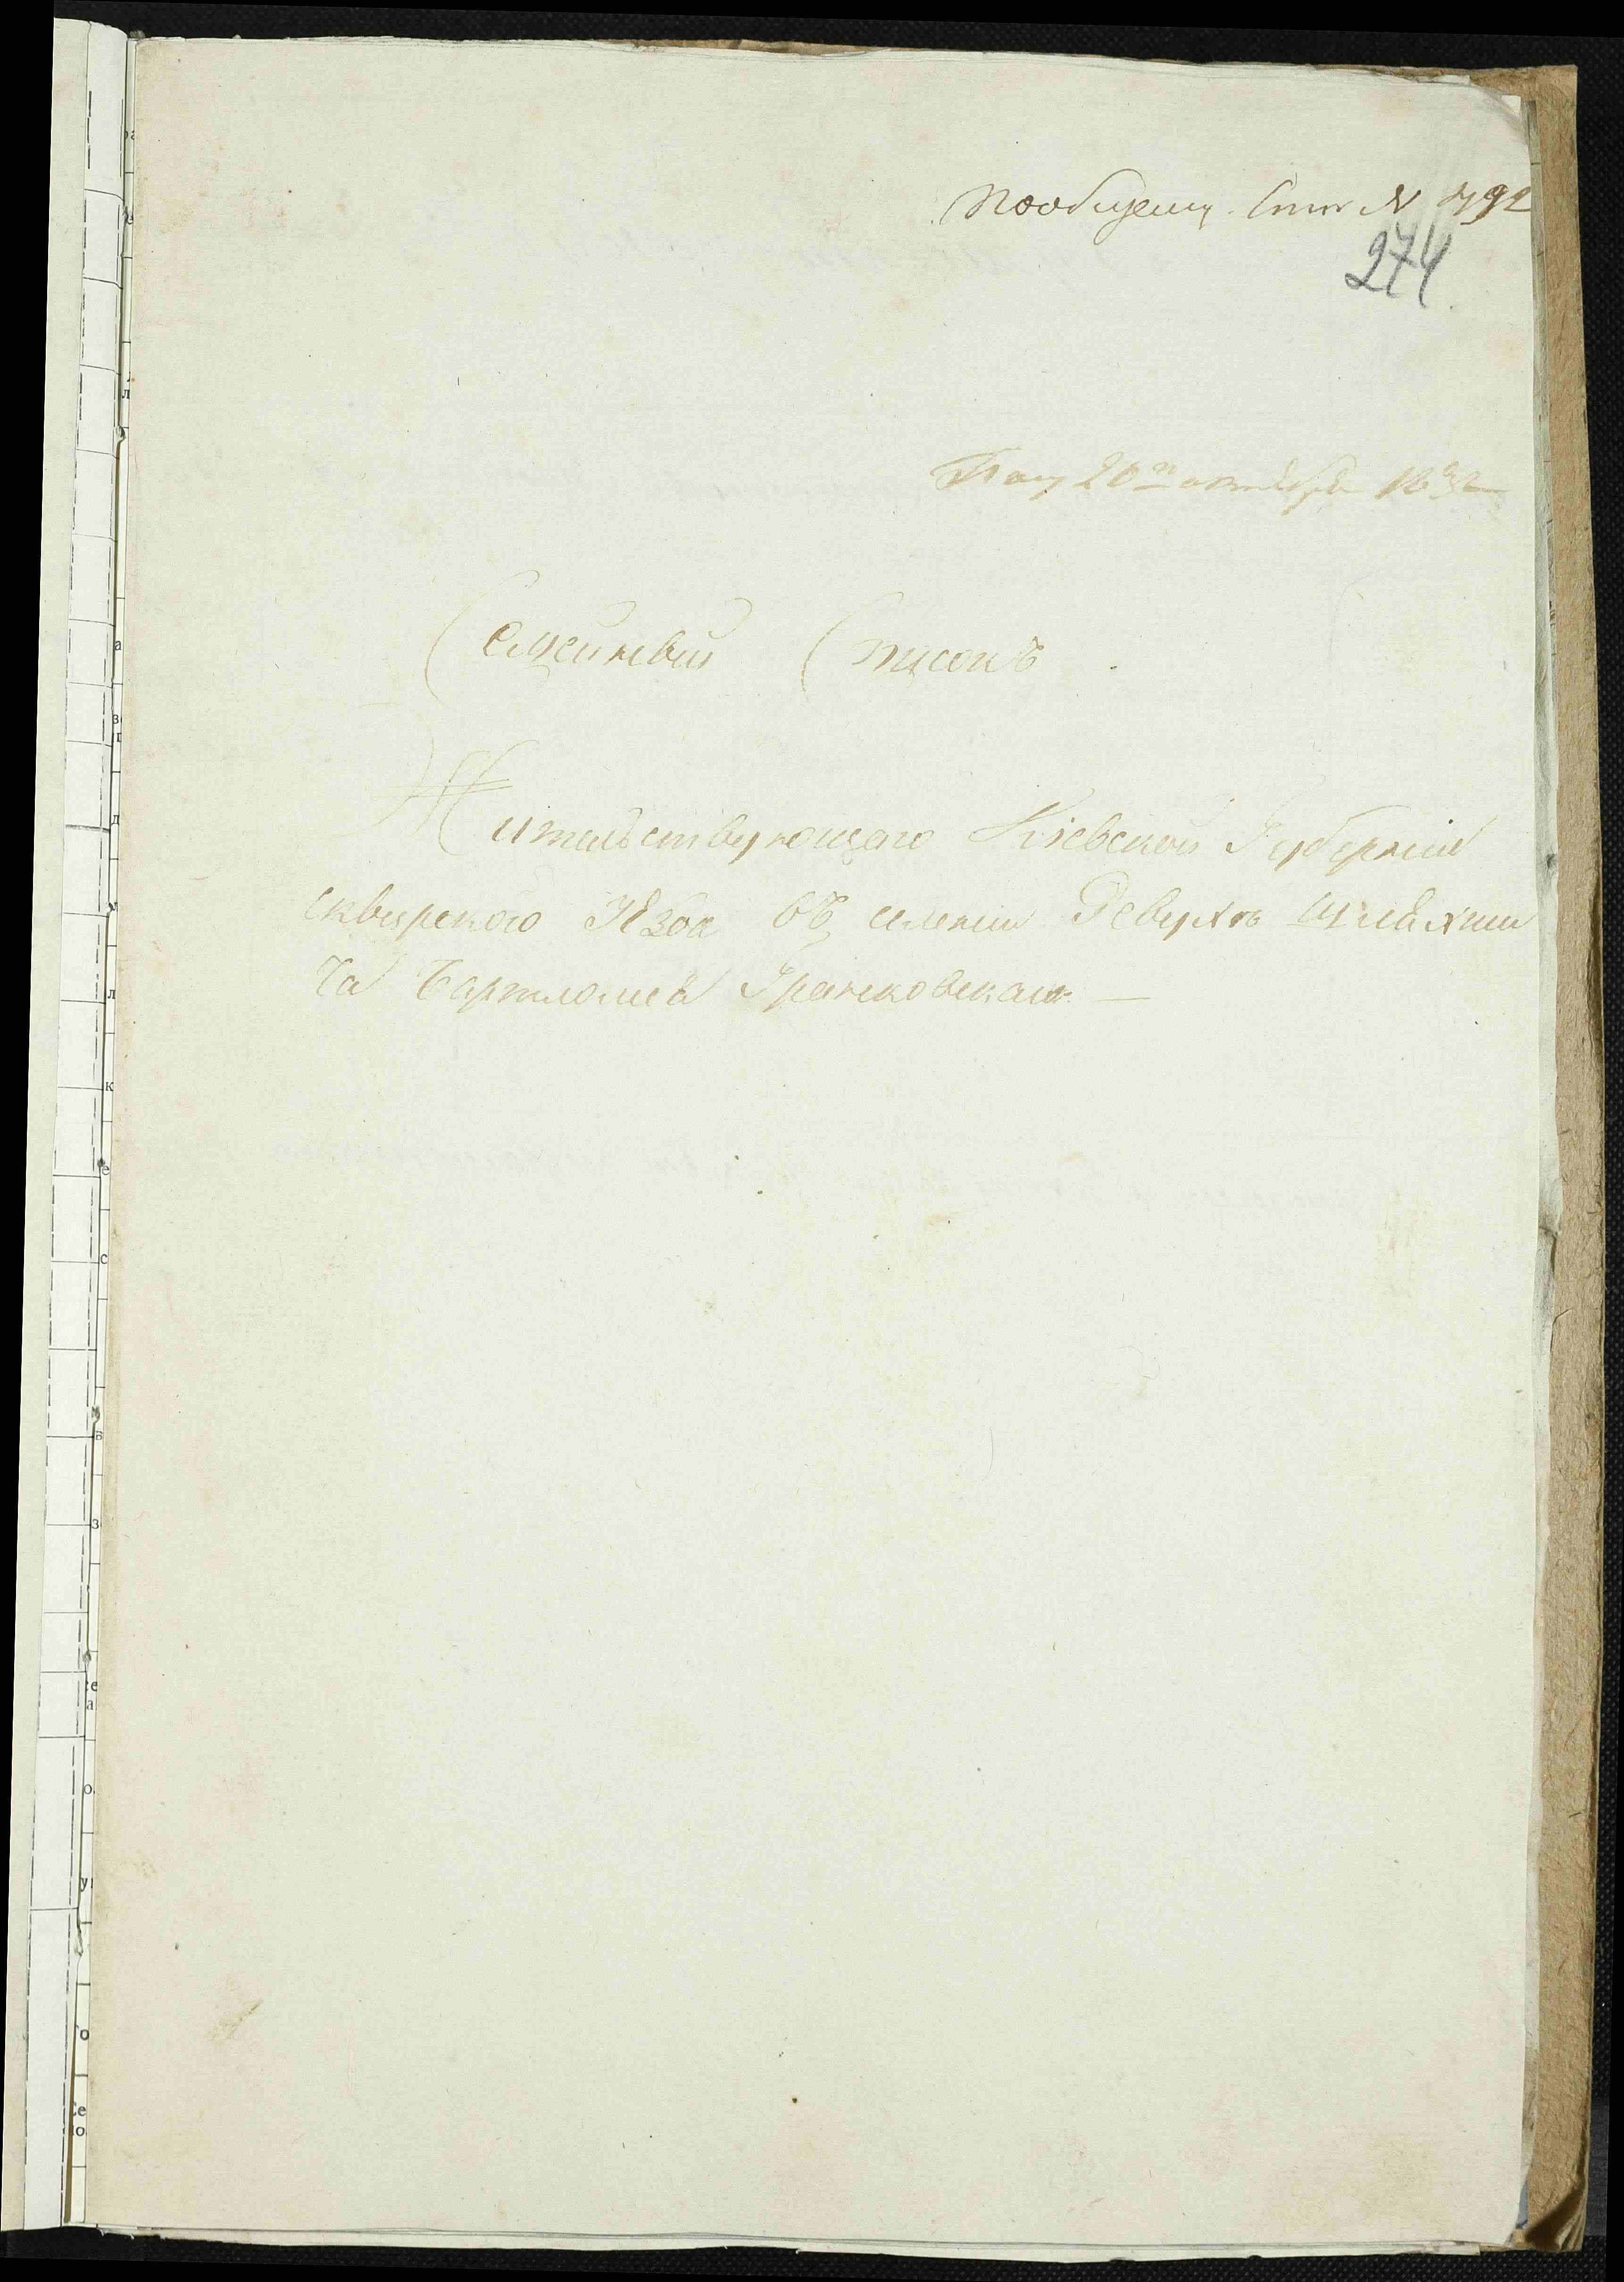 Пообщему Спис N 792
274
Пол 20го октября 1832
Семейный Списокъ
Жительствующаго Кіевской Губерніи
сквирского Уѣзда въ селеніи Ревухъ шляхти
ча Бартломея Гранковскаго —